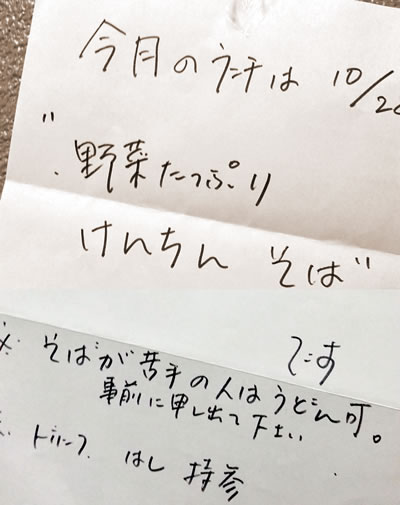 今月のランチは 10/20
"野菜たっぷり
けんちん そば"
です
※ そばが苦手の人はうどん可。
事前に申し出て下さい
※ ドリンク はし 持参